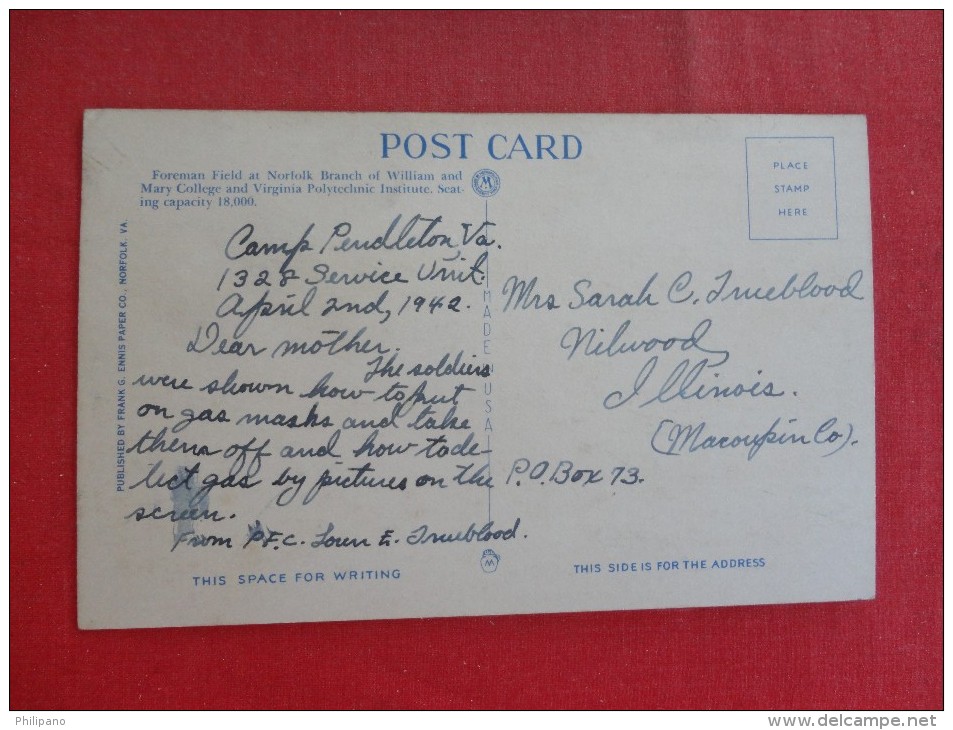 POST CARD
Foreman Field at Norfolk Branch of William and
Mary College and Virginia Polytechnic Institute. Seat-
ing capacity 18,000.
PLACE
STAMP
HERE
PUBLISHED BY FRANK G. ENNIS PAPER CO., NORFOLK, VA.
MADE USA
Camp Pendleton, Va.
1328 Service Unit.
April 2nd, 1942.
Dear mother.
The soldiers
were shown how to put
on gas masks and take
them off and how to de-
tect gas by pictures on the
screen.
From P.F.C. Loren E. Trueblood.
Mrs Sarah C. Trueblood
Nilwood,
Illinois.
(Macoupin Co).
P.O. Box 73.
THIS SPACE FOR WRITING
THIS SIDE IS FOR THE ADDRESS
Philipano
www.delcampe.net